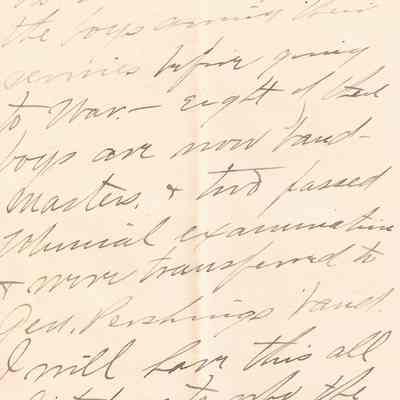 the boys during their
services before going
to War. - Eight of the
boys are now band-
masters, & two passed
examination
& were transferred to
Gen. Pershings band.
I will have this all
to the